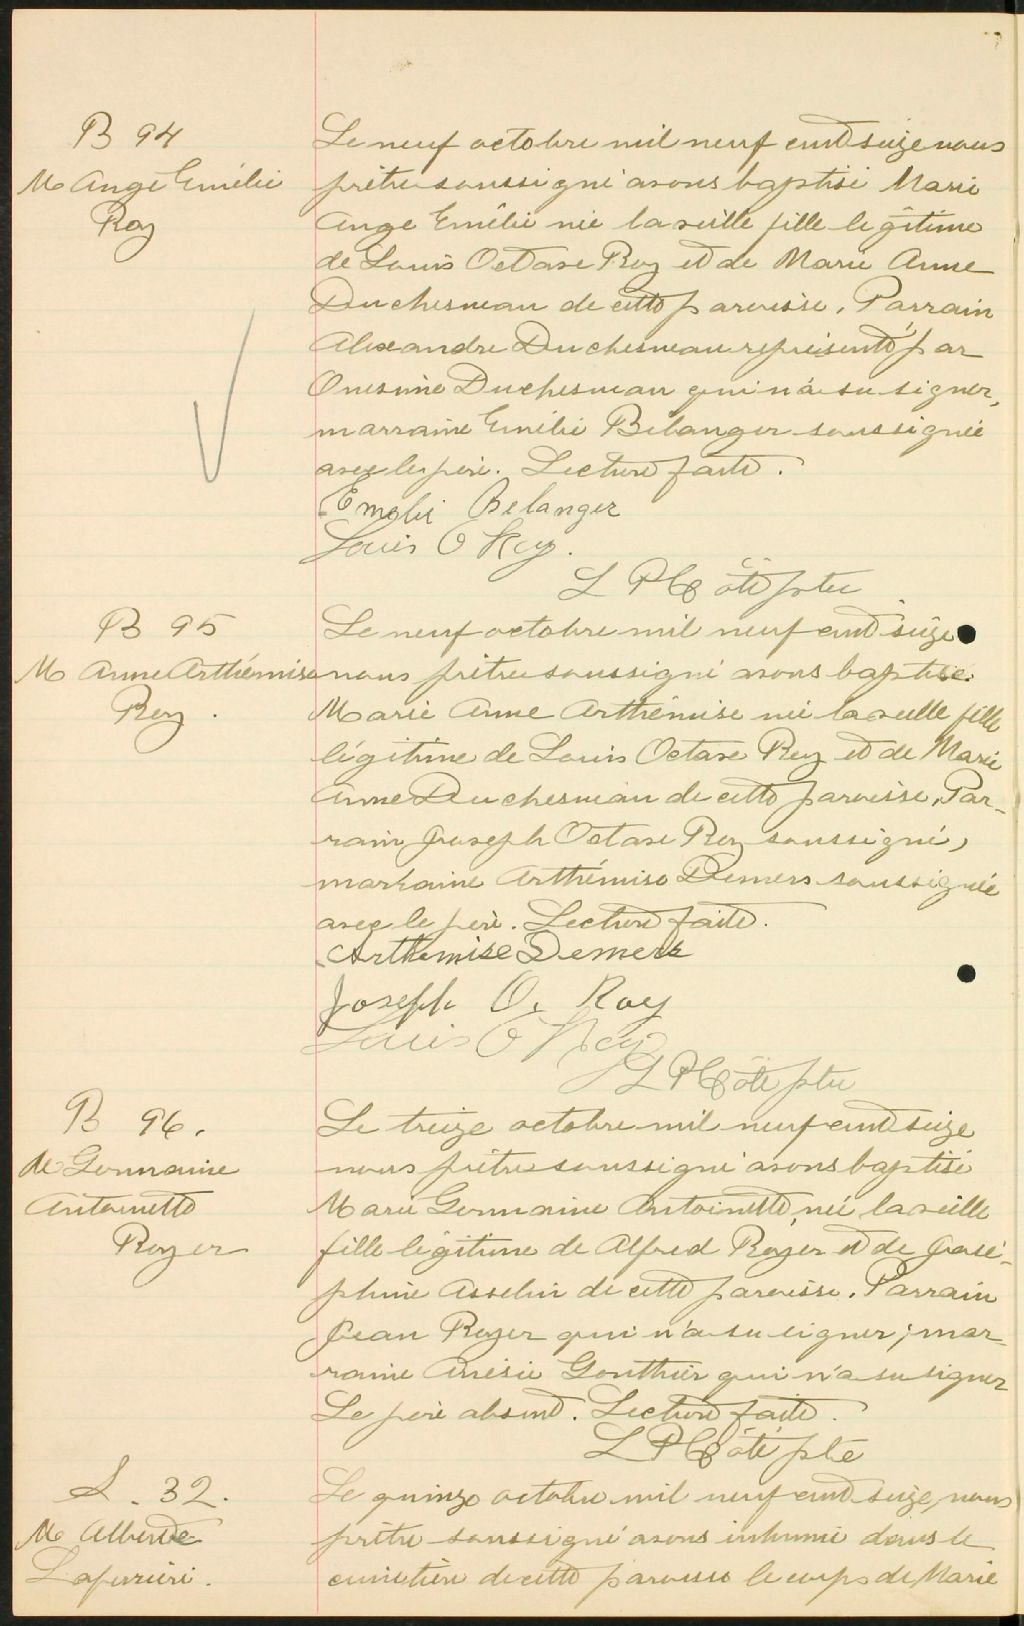 B 94
M Ange Emélie
Roy
Le neuf octobre mil neuf cent seize nous
prêtre soussigné avons baptisé Marie
Ange Emélie née la veille fille légitime
de Louis Octave Roy et de Marie Anne
Duchesneau de cette paroisse. Parrain
Alexandre Duchesneau représenté par
Onesime Duchesneau qui n'a su signer,
marraine Emélie Bélanger soussignée
avec le père. Lecture faite.
Emelie Belanger
Louis O Roy.
L P Côté ptre
B 95
M Anne Arthémise
Roy.
Le neuf octobre mil neuf cent seize
nous prêtre soussigné avons baptisé
Marie Anne Arthémise née la veille fille
légitime de Louis Octave Roy et de Marie
Anne Duchesneau de cette paroisse. Par-
rain Joseph Octave Roy soussigné,
marraine Arthémise Demers soussignée
avec le père. Lecture faite.
Arthemise Demers
Joseph O. Roy
Louis O Roy
L P Côté ptre
B 96.
M Germaine
Antoinette
Royer
Le treize octobre mil neuf cent seize
nous prêtre soussigné avons baptisé
Marie Germaine Antoinette, née la veille
fille légitime de Alfred Royer et de José-
phine Asselin de cette paroisse. Parrain
Jean Royer qui n'a su signer; mar-
raine Anésie Gonthier qui n'a su signer
Le père absent. Lecture faite.
L P Côté ptre
S. 32.
M Alberte
Laferrière.
Le quinze octobre mil neuf cent seize, nous
prêtre soussigné avons inhumé dans le
cimetière de cette paroisse le corps de Marie